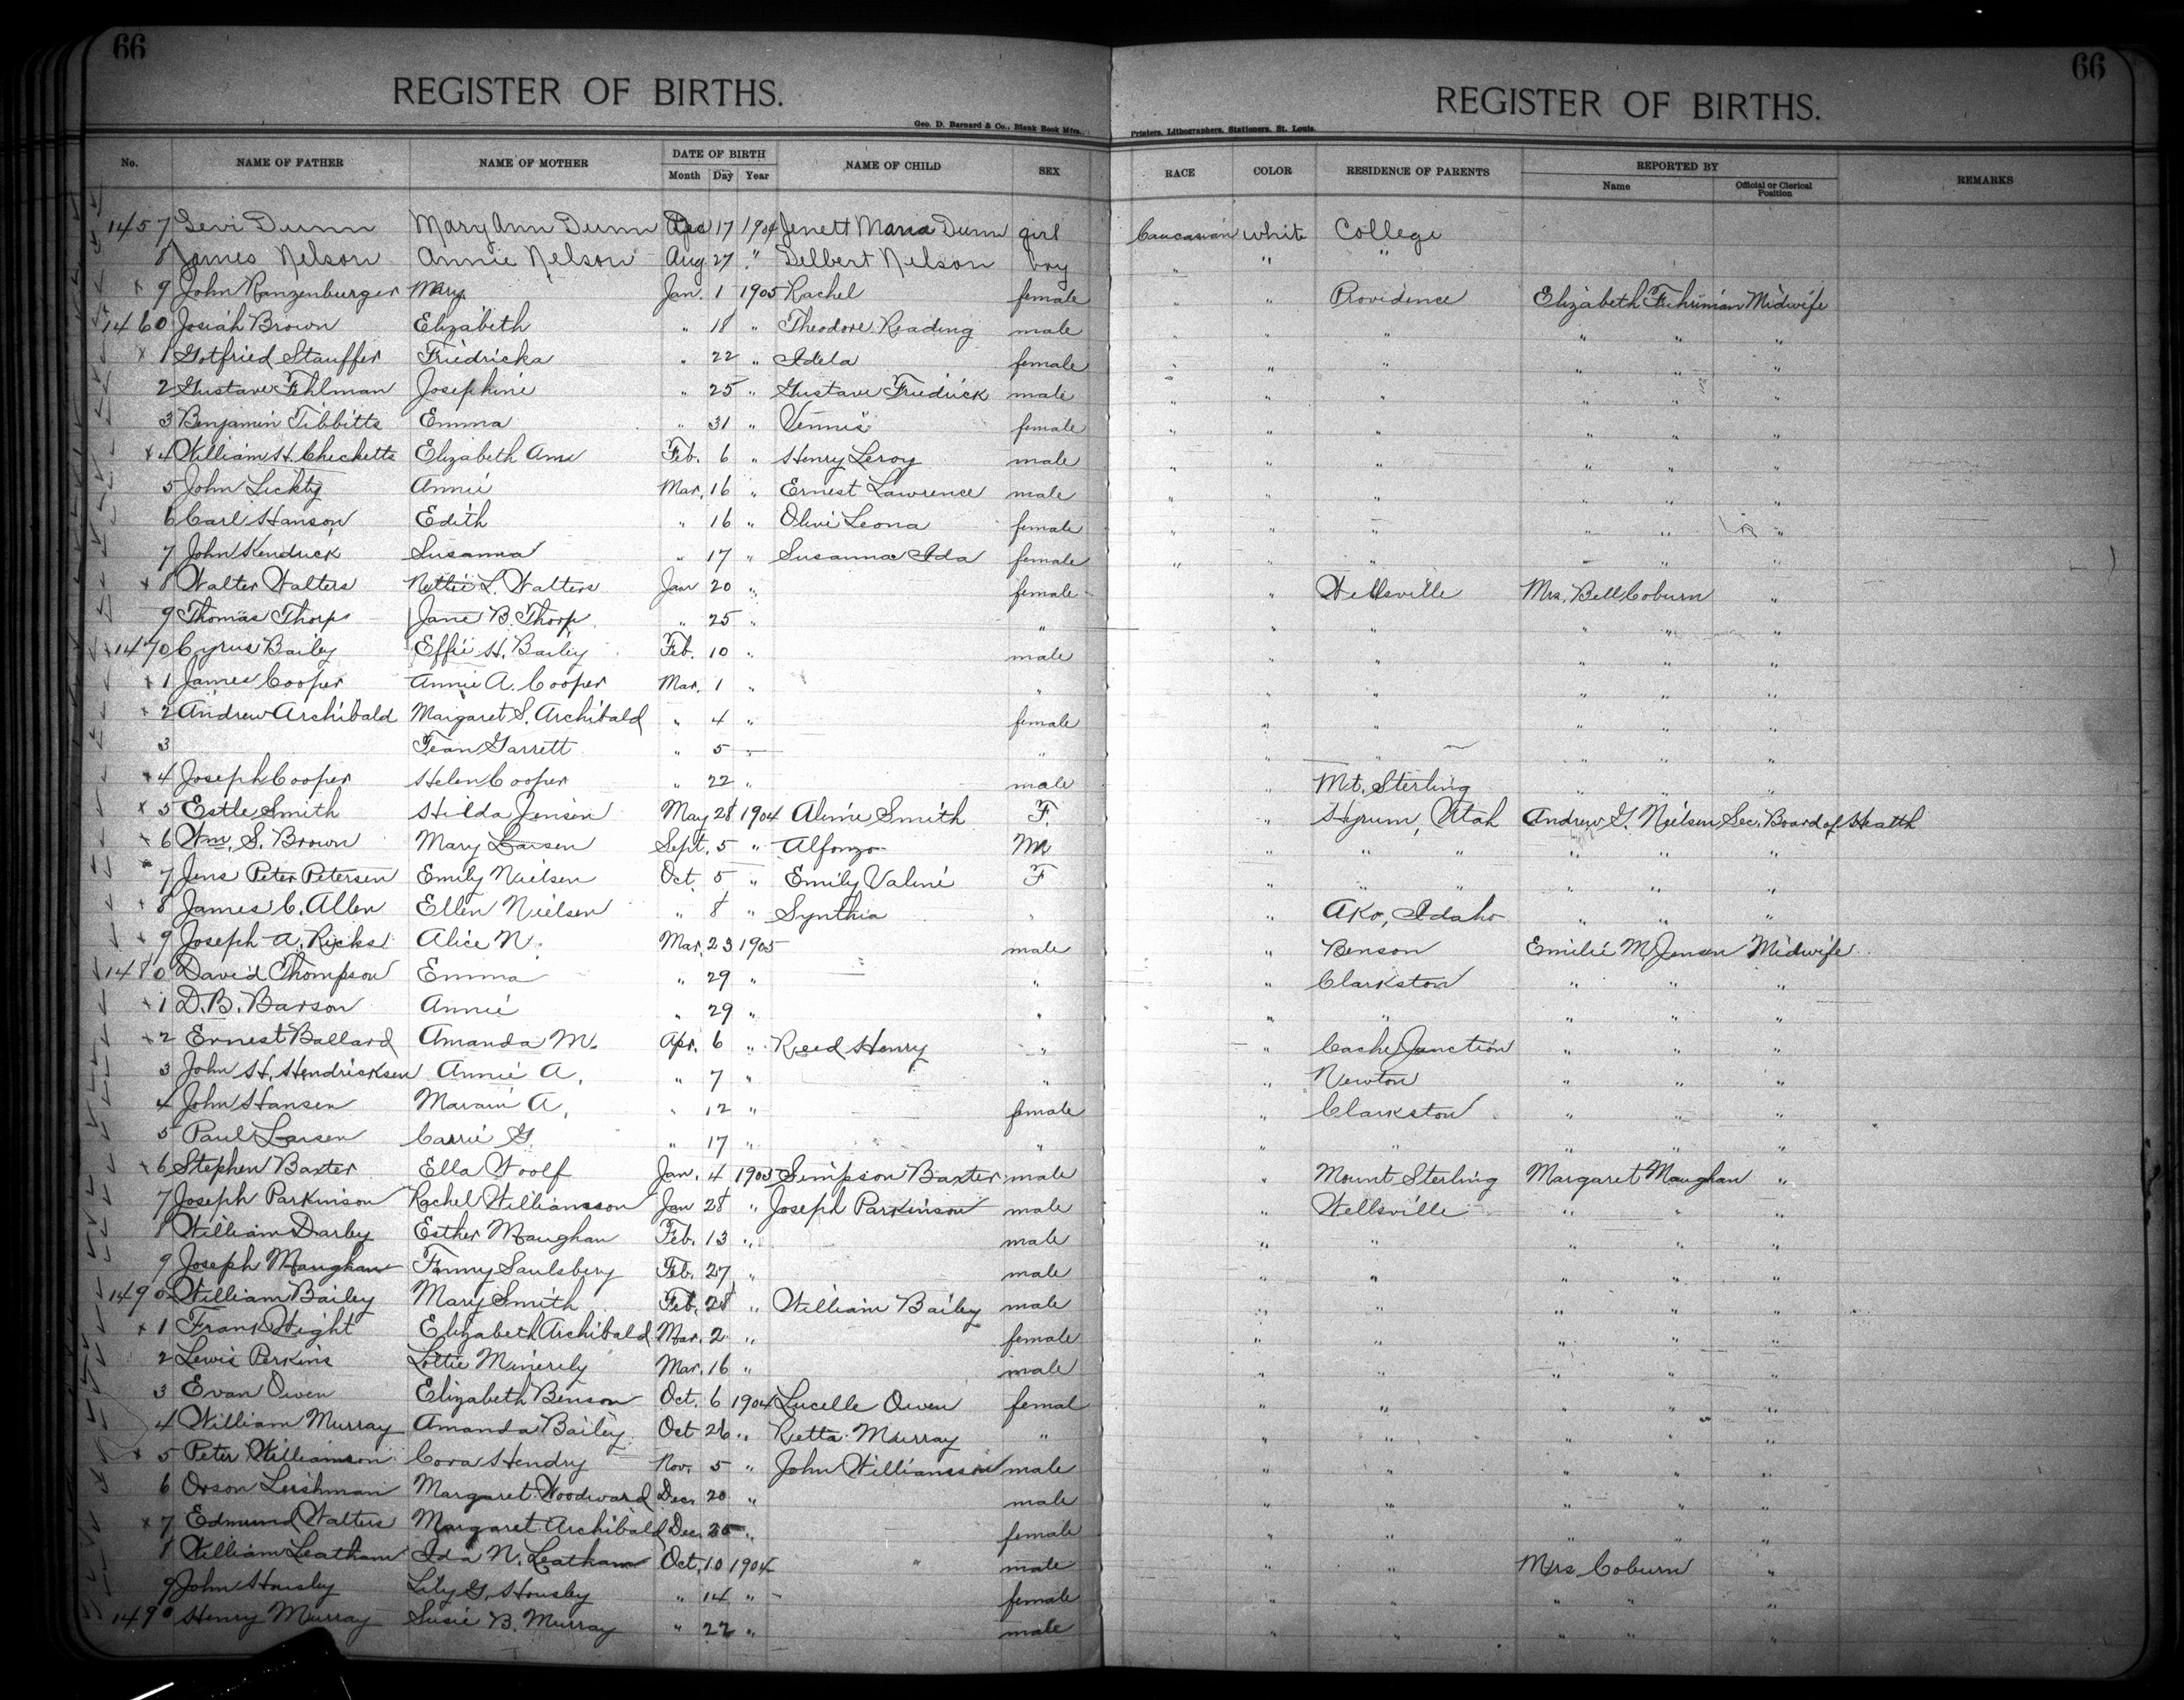 66
66
REGISTER OF BIRTHS.
REGISTER OF BIRTHS.
Geo. D. Barnard & Co., Blank Book Mfrs.,
Printers, Lithographers, Stationers, St. Louis.
No. NAME OF FATHER NAME OF MOTHER DATE OF BIRTH NAME OF CHILD SEX RACE COLOR RESIDENCE OF PARENTS REPORTED BY REMARKS
Month Day Year Name Official or Clerical Position
1457 Levi Dunn Mary Ann Dunn 17 1904 Jenett Maria Dunn girl Caucasian white College
8 James Nelson Annie Nelson Aug 27 " Delbert Nelson boy " " "
x 9 John Ranzenburger Mary Jan. 1 1905 Rachel female " " Providence Elizabeth Fuhriman Midwife
1460 Josiah Brown Elizabeth " 18 " Theodore Reading male " " " " " "
x 1 Gotfried Stauffer Friedricka " 22 " Adela female " " " " " "
2 Gustave Fehlman Josephine " 25 " Gustave Friedrick male " " " " " "
3 Benjamin Tibbitts Emma " 31 " Vennie female " " " " " "
x 4 William H. Checketts Elizabeth Ann Feb. 6 " Henry Leroy male " " " " " "
5 John Lickty Annie Mar. 16 " Ernest Lawrence male " " " " " "
6 Carl Hanson Edith " 16 " Olive Leona female " " " " " "
7 John Kendrick Susanna " 17 " Susanna Ida female " " " " " "
x 8 Walter Walters Nettie L. Walters Jan 20 " female " Wellsville Mrs. Bell Coburn "
9 Thomas Thorp Jane B. Thorp " 25 " " " " " " "
1470 Cyrus Bailey Effie H. Bailey Feb. 10 " male " " " " "
x 1 James Cooper Annie A. Cooper Mar. 1 " " " " " " "
x 2 Andrew Archibald Margaret S. Archibald " 4 " female " " " " "
3 Jean Garrett " 5 " " " " " " "
x 4 Joseph Cooper Helen Cooper " 22 " male " Mt. Sterling " " "
x 5 Estle Smith Hilda Jensen May 28 1904 Smith F. " Hyrum, Utah Andrew G. Nielsen Sec. Board of Health
x 6 Wm. S. Brown Mary Larsen Sept. 5 " Alfonzo M " " " " " "
7 Jens Peter Petersen Emily Nielsen Oct. 5 " Emily Valine F " " " " " "
x 8 James C. Allen Ellen Nielsen " 8 " Synthia " " Idaho " " "
x 9 Joseph A. Ricks Alice N. Mar. 23 1905 male " Benson Emilie M. Jensen Midwife
1480 David Thompson Emma " 29 " " " Clarkston " " "
x 1 D. B. Barson Annie " 29 " " " " " " "
x 2 Ernest Ballard Amanda M. Apr. 6 " Reed Henry " " Cache Junction " " "
3 John H. Hendricksen Annie A. " 7 " " " Newton " " "
4 John Hansen A. " 12 " female " Clarkston " " "
5 Paul Larsen Carrie G. " 17 " " " " " " "
x 6 Stephen Baxter Ella Woolf Jan. 4 1905 Simpson Baxter male " Mount Sterling Margaret Maughan "
7 Joseph Parkinson Rachel Williamson Jan 28 " Joseph Parkinson male " Wellsville " " "
8 William Darby Esther Maughan Feb. 13 " male " " " " "
9 Joseph Maughan Fanny Saulsbery Feb. 27 " male " " " " "
1490 William Bailey Mary Smith Feb. 28 " William Bailey male " " " " "
x 1 Frank Wight Elizabeth Archibald Mar. 2 " female " " " " "
2 Lewis Perkins Lottie Minerily Mar. 16 " male " " " " "
3 Evan Owen Elizabeth Benson Oct. 6 1904 Lucelle Owen femal " " " " "
4 William Murray Amanda Bailey Oct 26 " Retta Murray " " " " " "
x 5 Peter Williamson Cora Hendry Nov. 5 " John Williamson male " " " " "
6 Orson Leishman Margaret Woodward Dec. 20 " male " " " " "
x 7 Edmund Walters Margaret Archibald Dec. " female " " " " "
8 William Leatham Ida N. Leatham Oct. 10 1904 male " " Mrs Coburn "
9 John Housley Lily G. Housley " 14 " female " " " " "
1490 Henry Murray Susie B. Murray " 22 " male " " " " "